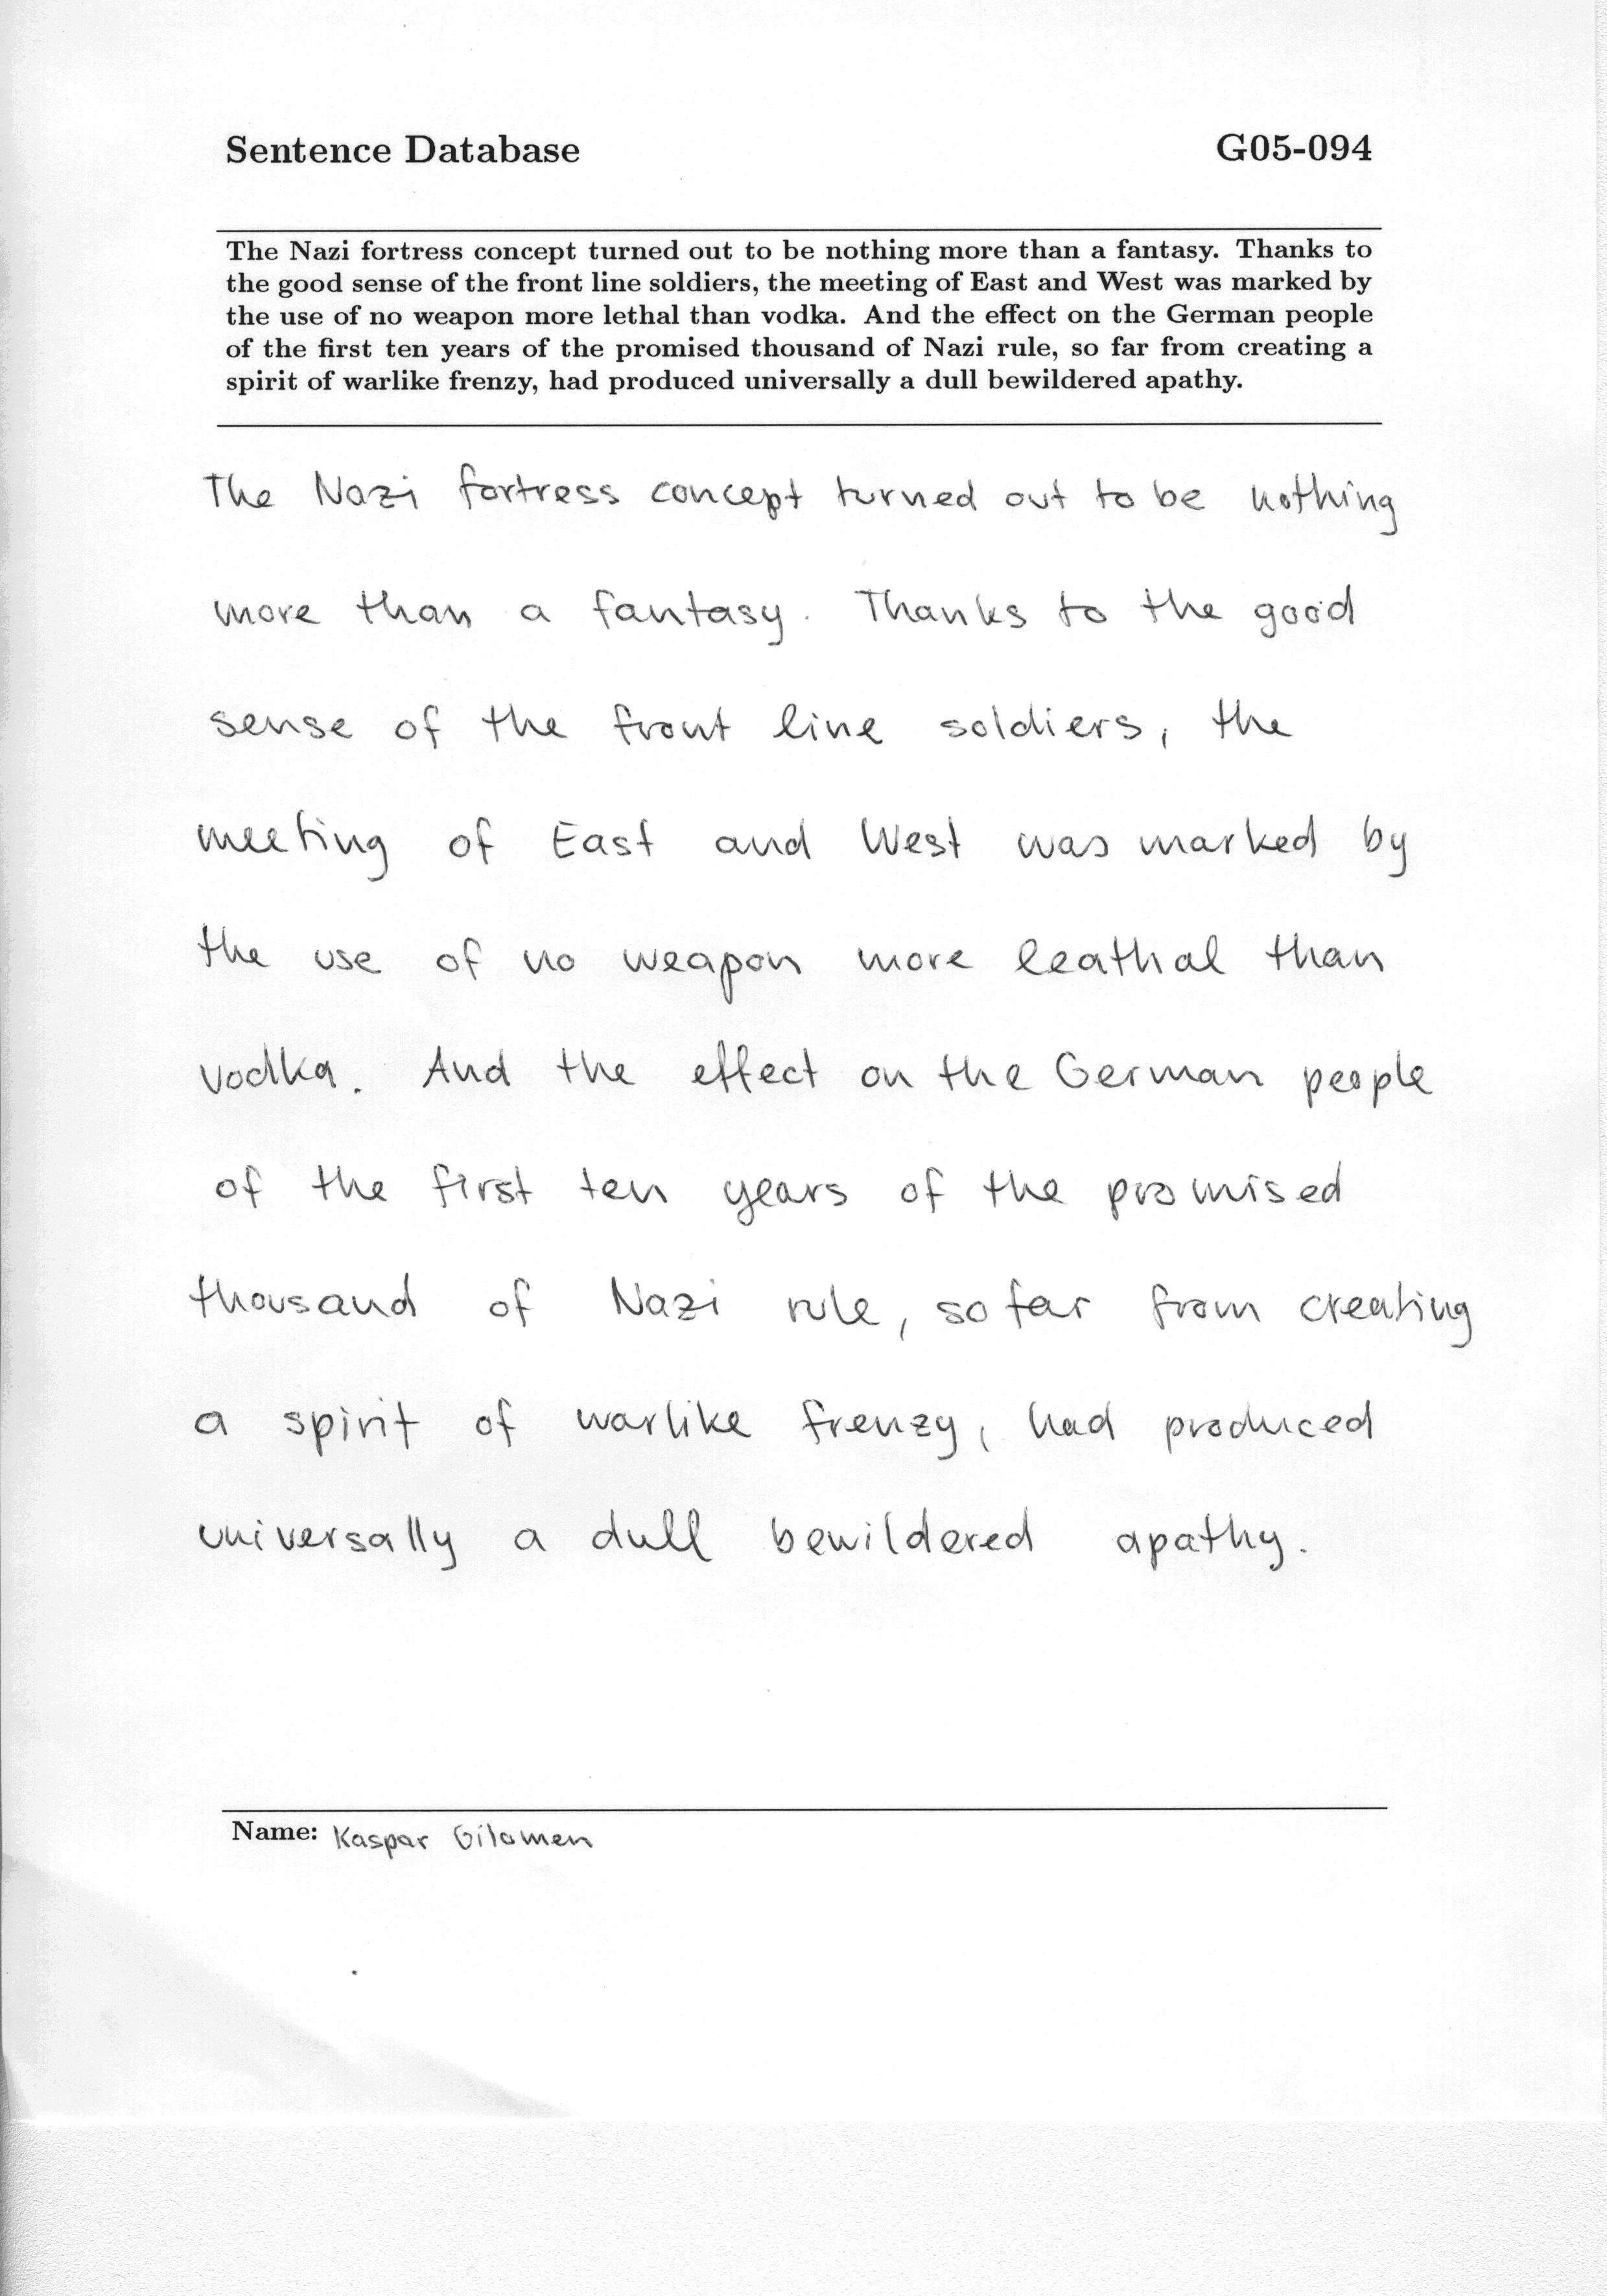 Sentence Database G05-094
The Nazi fortress concept turned out to be nothing more than a fantasy. Thanks to
the good sense of the front line soldiers, the meeting of East and West was marked by
the use of no weapon more lethal than vodka. And the effect on the German people
of the first ten years of the promised thousand of Nazi rule, so far from creating a
spirit of warlike frenzy, had produced universally a dull bewildered apathy.
The Nazi fortress concept turned out to be nothing
more than a fantasy. Thanks to the good
sense of the front line soldiers, the
meeting of East and West was marked by
the use of no weapon more leathal than
vodka. And the effect on the German people
of the first ten years of the promised
thousand of Nazi rule, so far from creating
a spirit of warlike frenzy, had produced
universally a dull bewildered apathy.
Name: Kaspar Gilomen